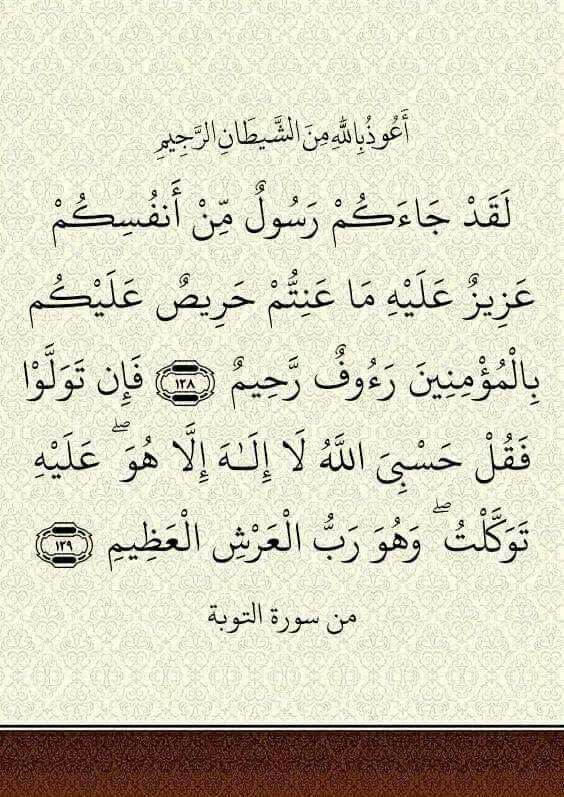 أَعُوذُ بِاللَّهِ مِنَ الشَّيْطَانِ الرَّجِيمِ
لَقَدْ جَاءَكُمْ رَسُولٌ مِّنْ أَنفُسِكُمْ
عَزِيزٌ عَلَيْهِ مَا عَنِتُّمْ حَرِيصٌ عَلَيْكُم
بِالْمُؤْمِنِينَ رَءُوفٌ رَّحِيمٌ ١٢٨ فَإِن تَوَلَّوْا
فَقُلْ حَسْبِىَ اللَّهُ لَا إِلَـٰهَ إِلَّا هُوَ ۖ عَلَيْهِ
تَوَكَّلْتُ ۖ وَهُوَ رَبُّ الْعَرْشِ الْعَظِيمِ ١٢٩
من سورة التوبة